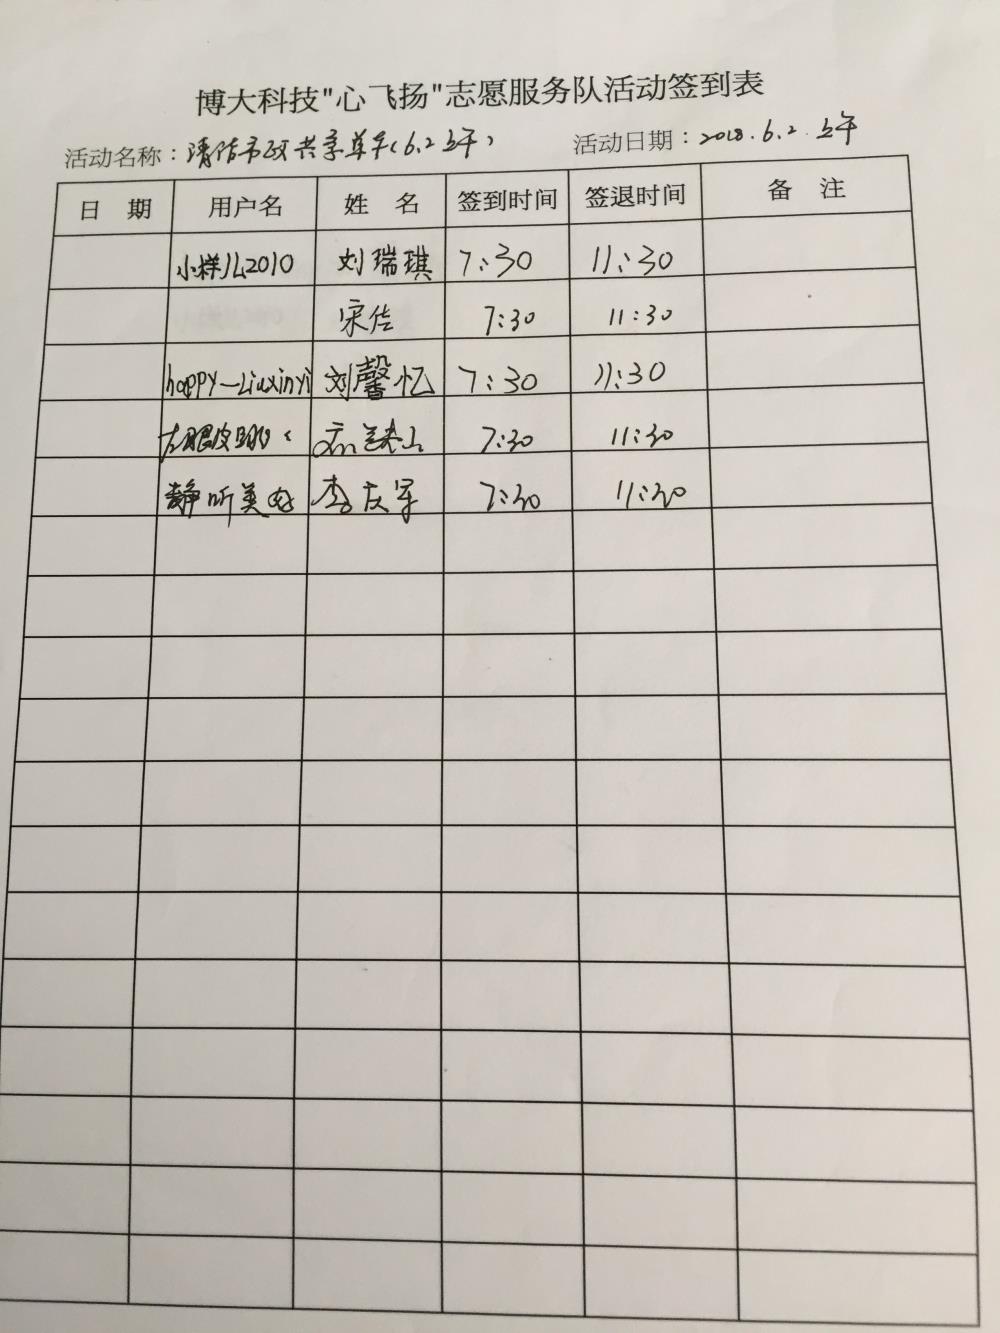 博大科技"心飞扬"志愿服务队活动签到表
活动名称：清洁市政共享单车（6.2上午） 活动日期：2018.6.2.上午
日 期 用户名 姓 名 签到时间 签退时间 备 注
小样儿2010 刘瑞琪 7:30 11:30
宋佳 7:30 11:30
happy—Liuxinyi 刘馨忆 7:30 11:30
左眼皮跳 7:30 11:30
静听美好 李庆军 7:30 11:30